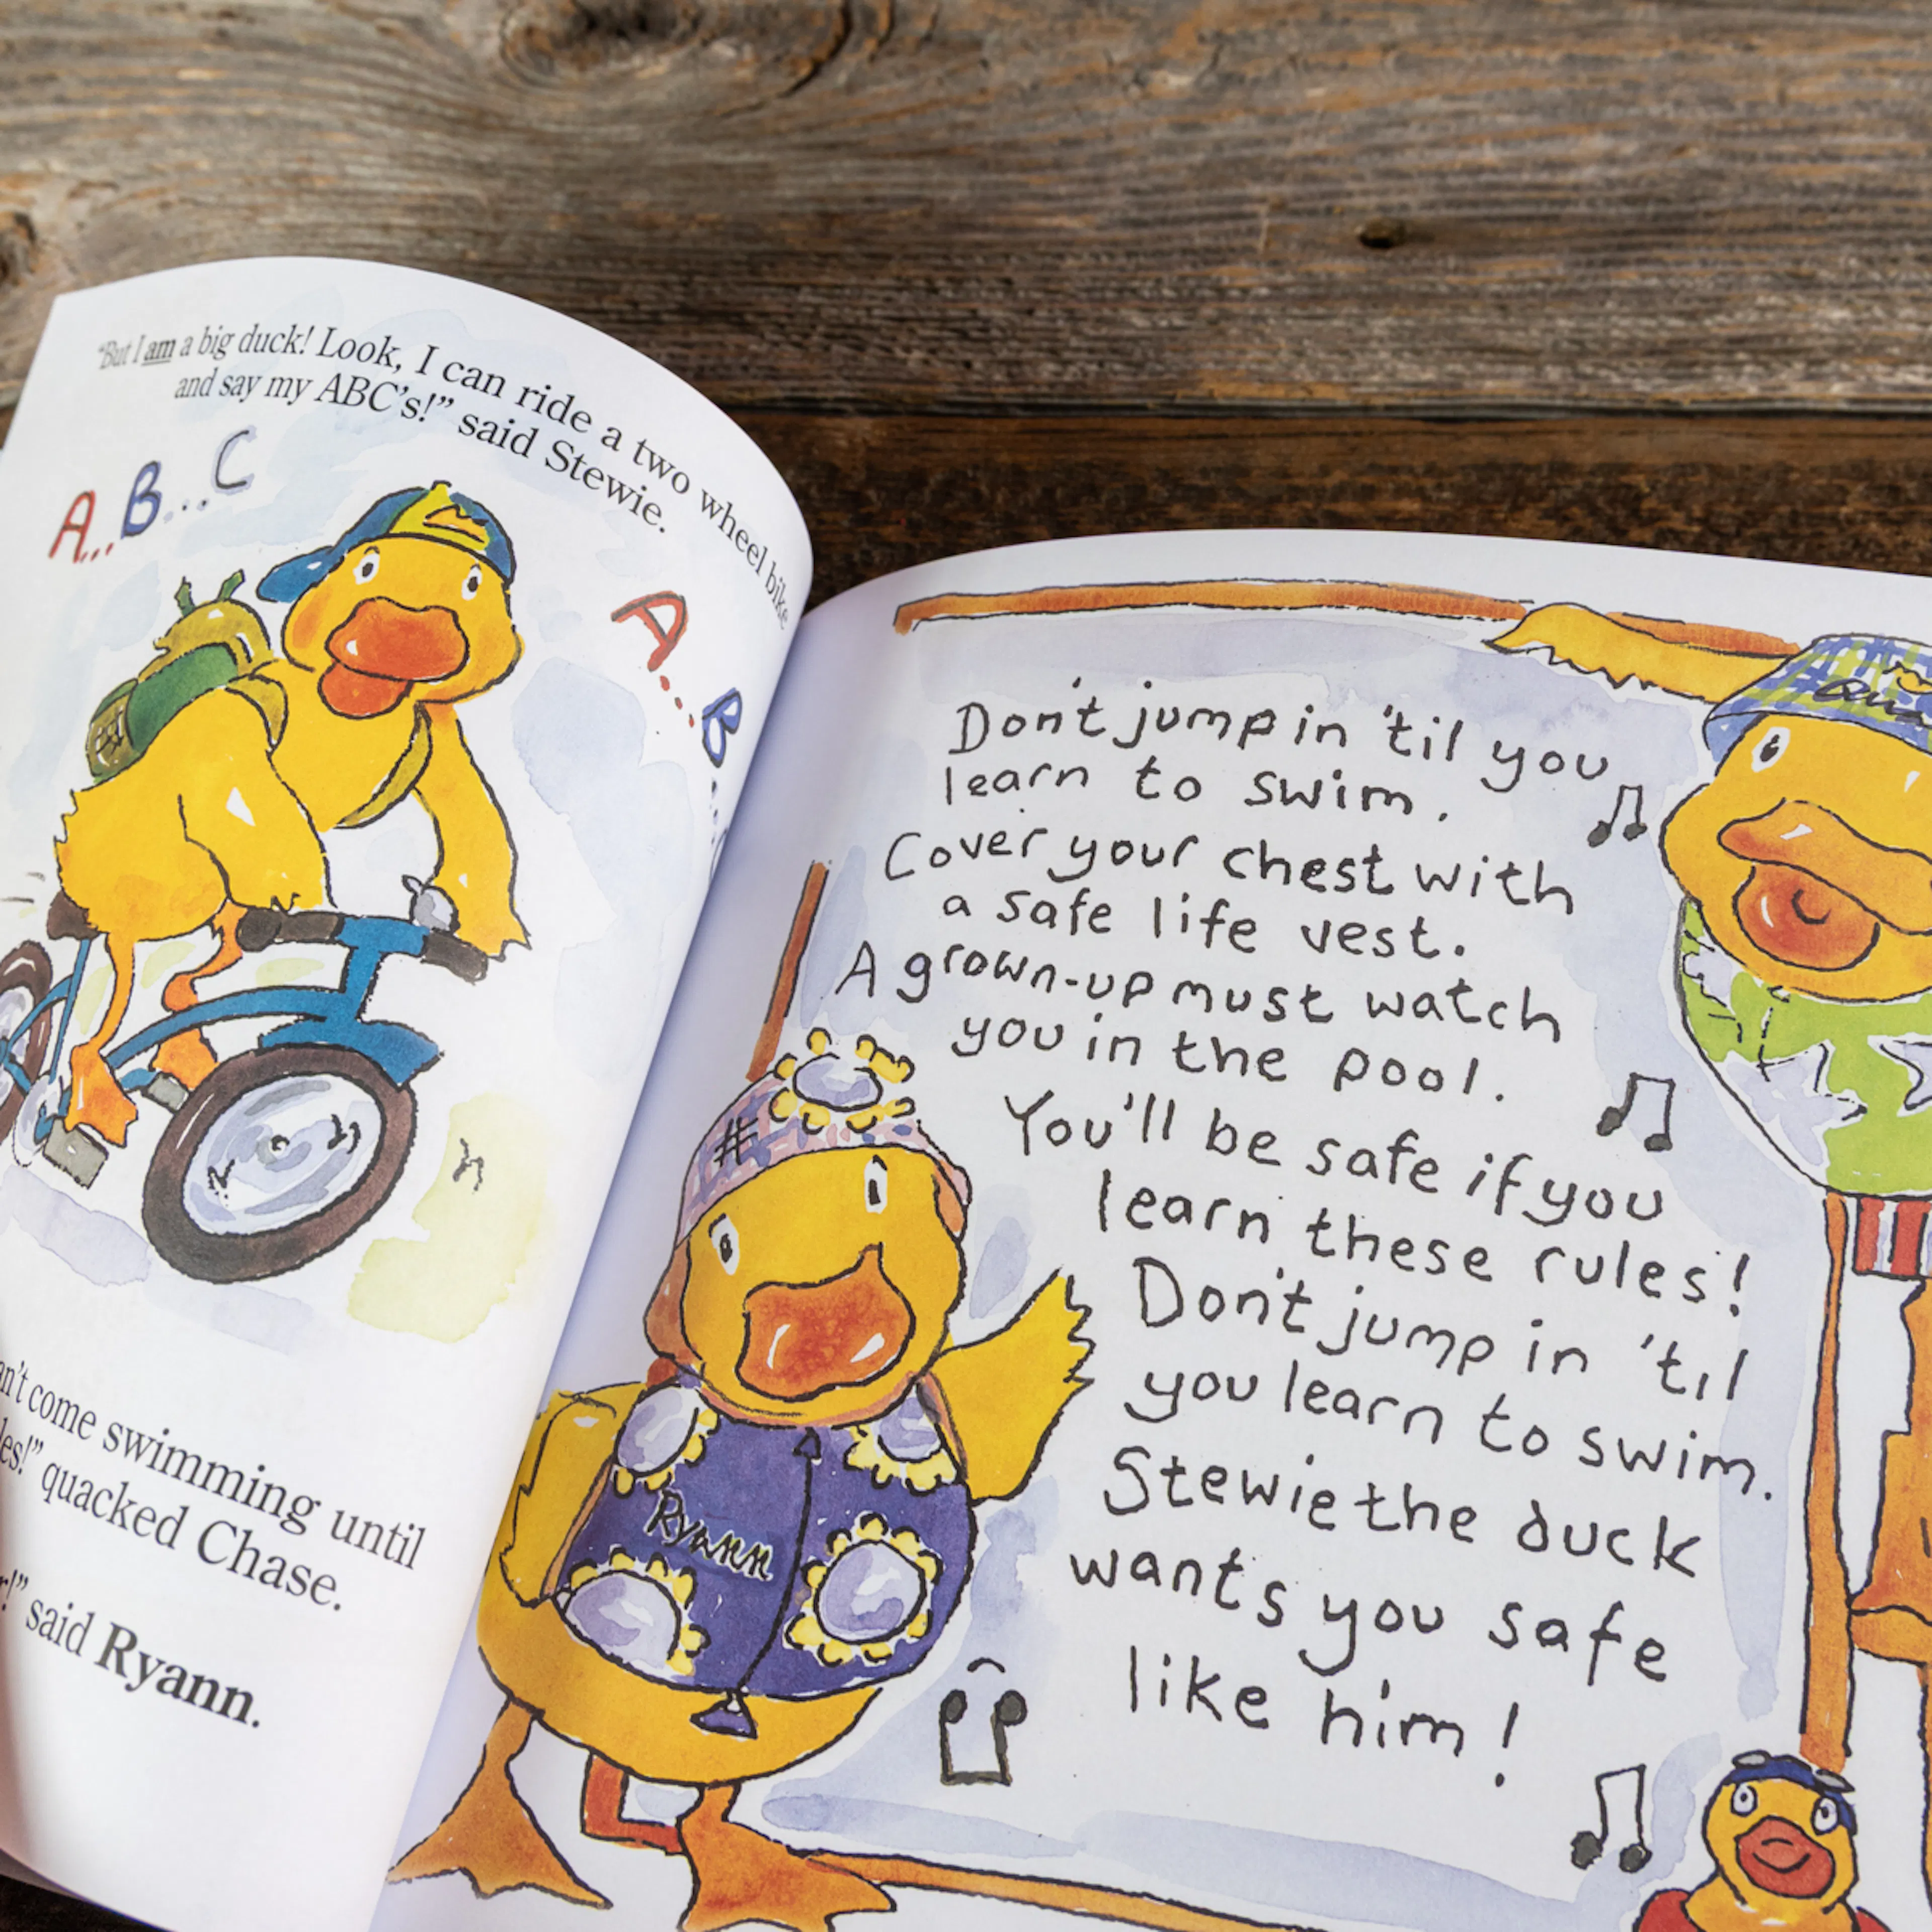 "But I am a big duck! Look, I can ride a two wheel bike
and say my ABC's!" said Stewie.
A...B...C
A...B...
come swimming until
quacked Chase.
said Ryann.
Don't jump in 'til you
learn to swim.
Cover your chest with
a safe life vest.
A grown-up must watch
you in the pool.
You'll be safe if you
learn these rules!
Don't jump in 'til
you learn to swim.
Stewie the duck
wants you safe
like him!
Ryann